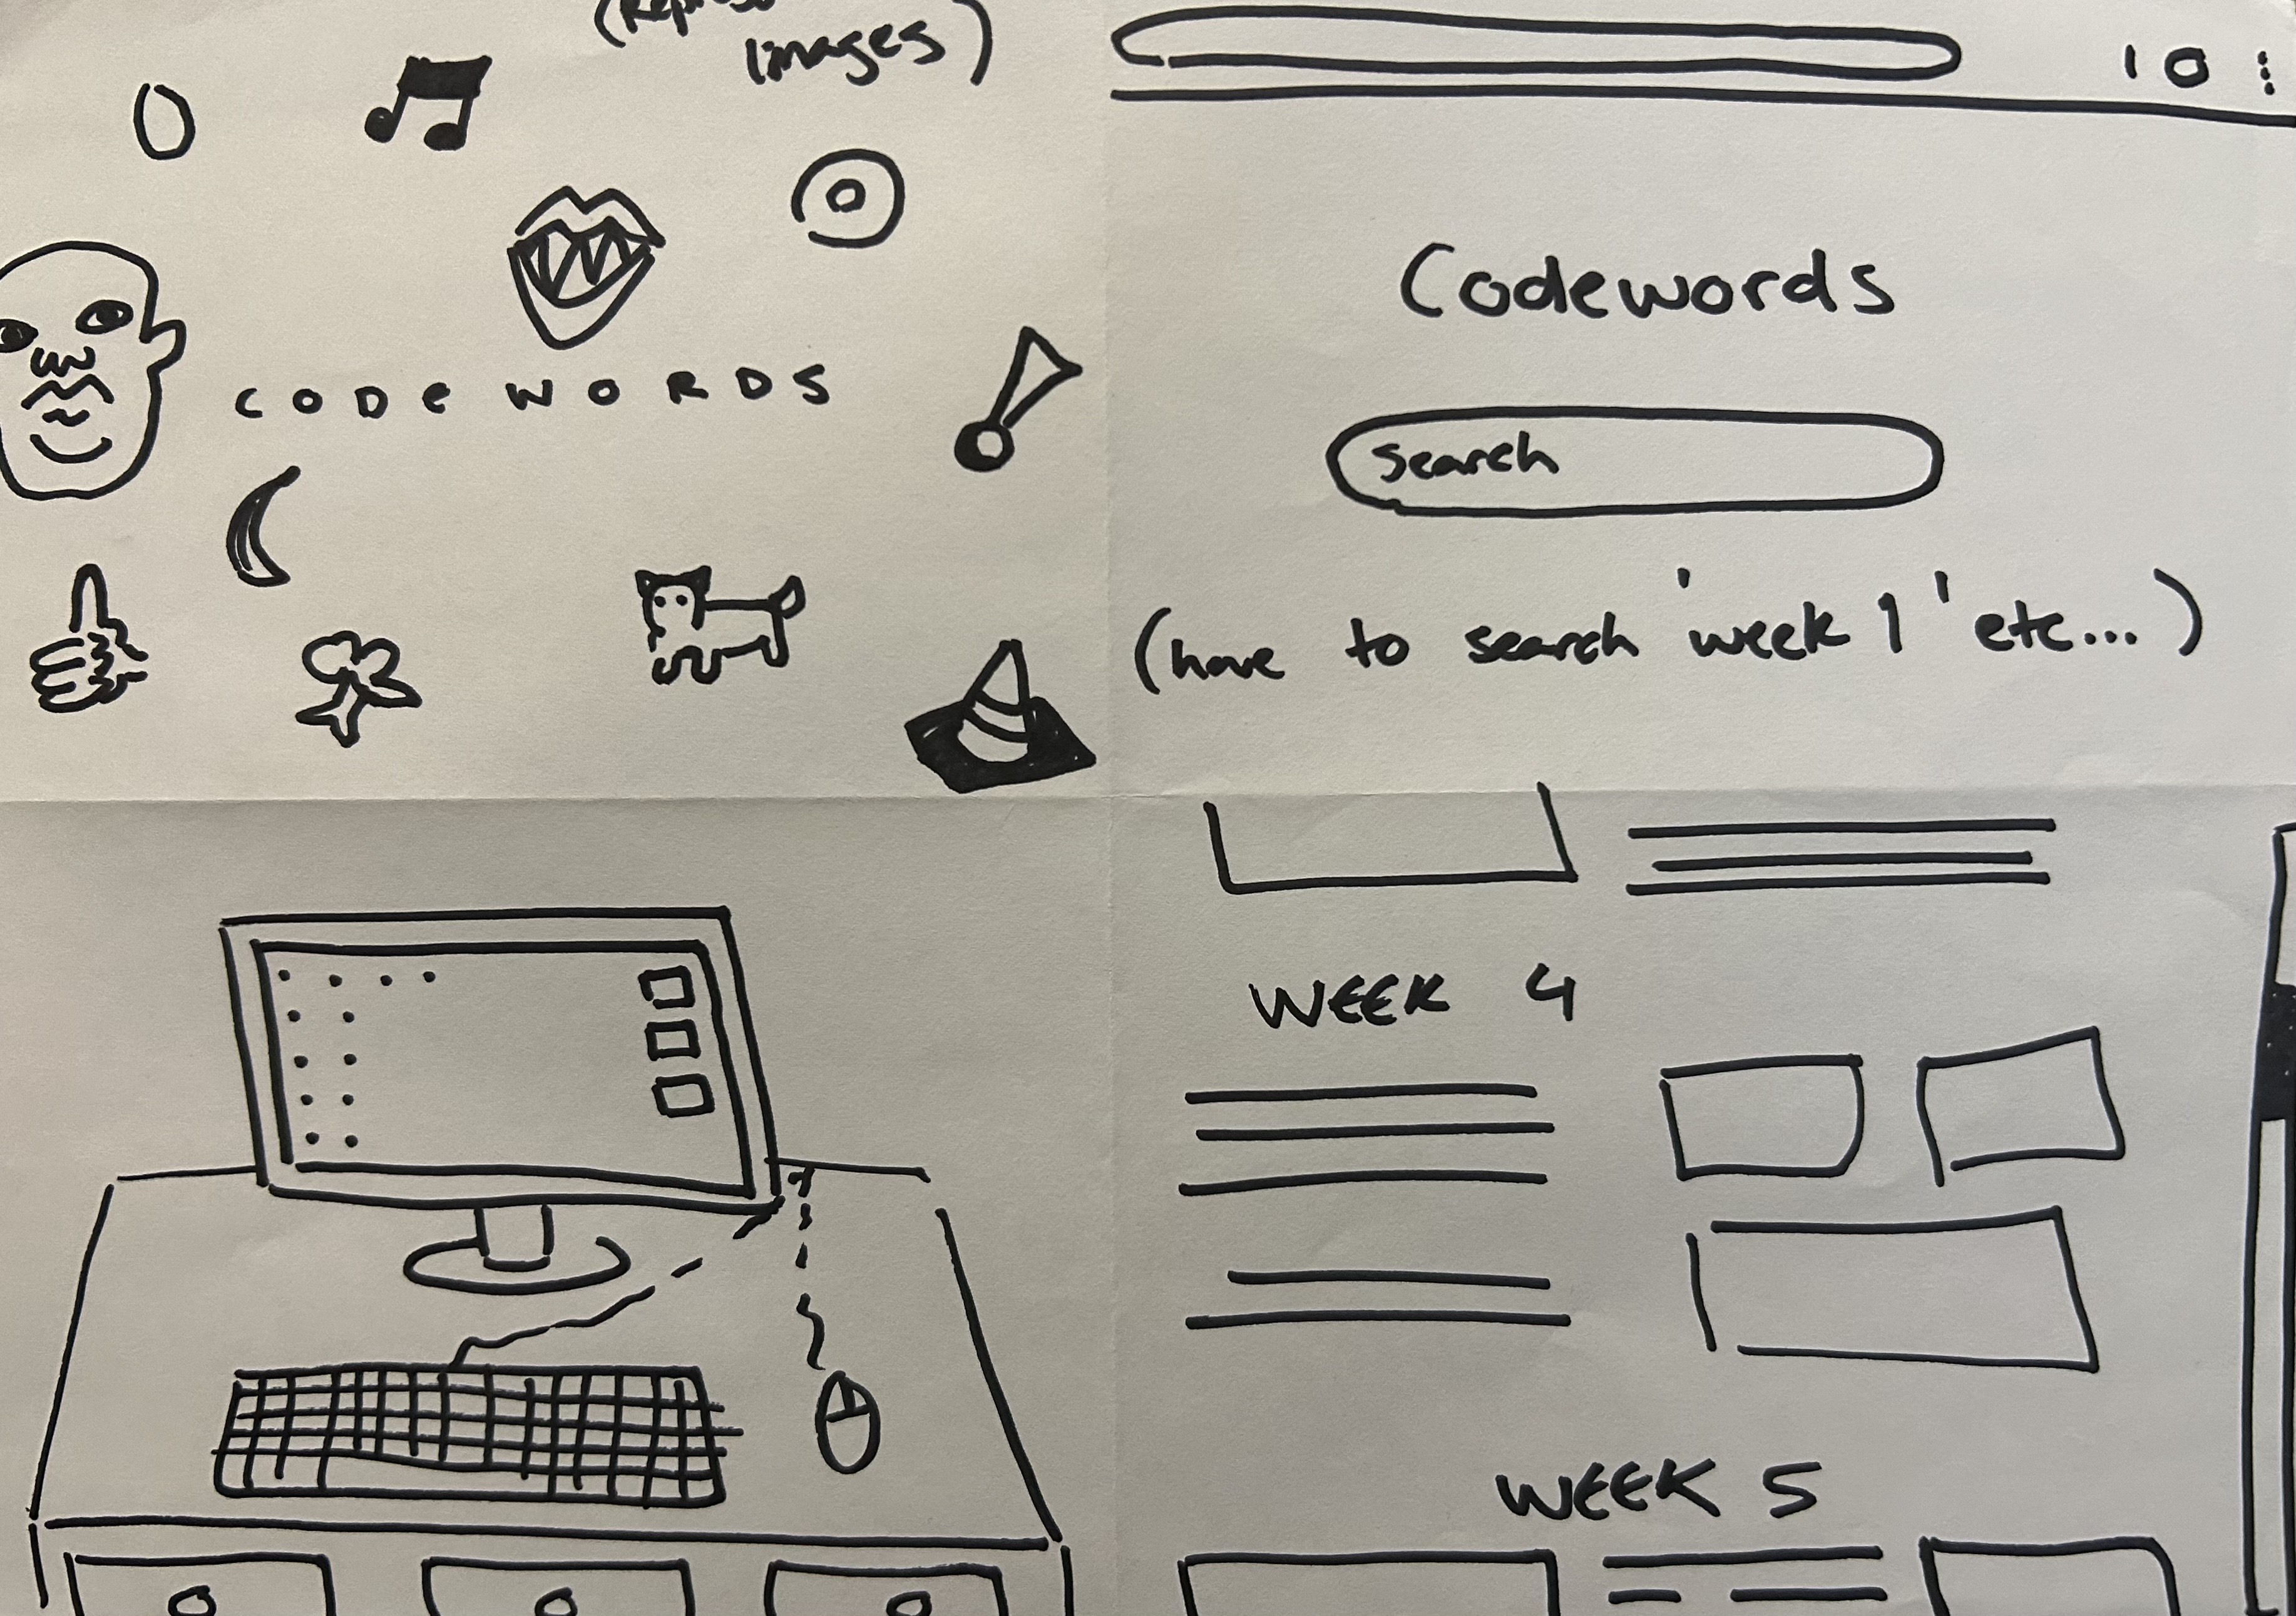 images)
CODe WORDS
Codewords
search
(have to search 'week 1' etc...)
WEEK 4
WEEK 5